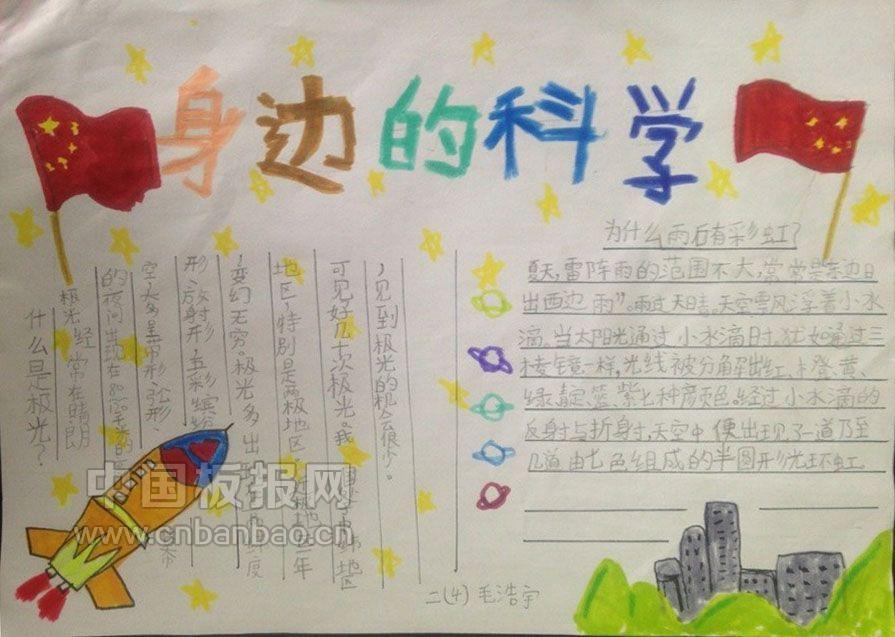 身边的科学
什么是极光？
极光经常在晴朗
的夜间出现在
空,大多呈带形、弧形、
形、放射形,五彩缤纷
,变幻无穷。极光多出 度
地区,特别是两极地区, 一年
可见好几十次极光。我 地区
,见到极光的机会很少。
为什么雨后有彩虹?
夏天,雷阵雨的范围不大,常常是东边日
出西边雨"。雨过天晴,天空 浮着小水
滴。当太阳光通过小水滴时,犹如通过三
棱镜一样,光线被分解出红、橙、黄、
绿、靛、篮、紫七种颜色,经过小水滴的
反射与折射,天空中便出现了一道乃至
几道由七色组成的半圆形光环虹。
二(4) 毛浩宇
中国板报网
www.cnbanbao.cn